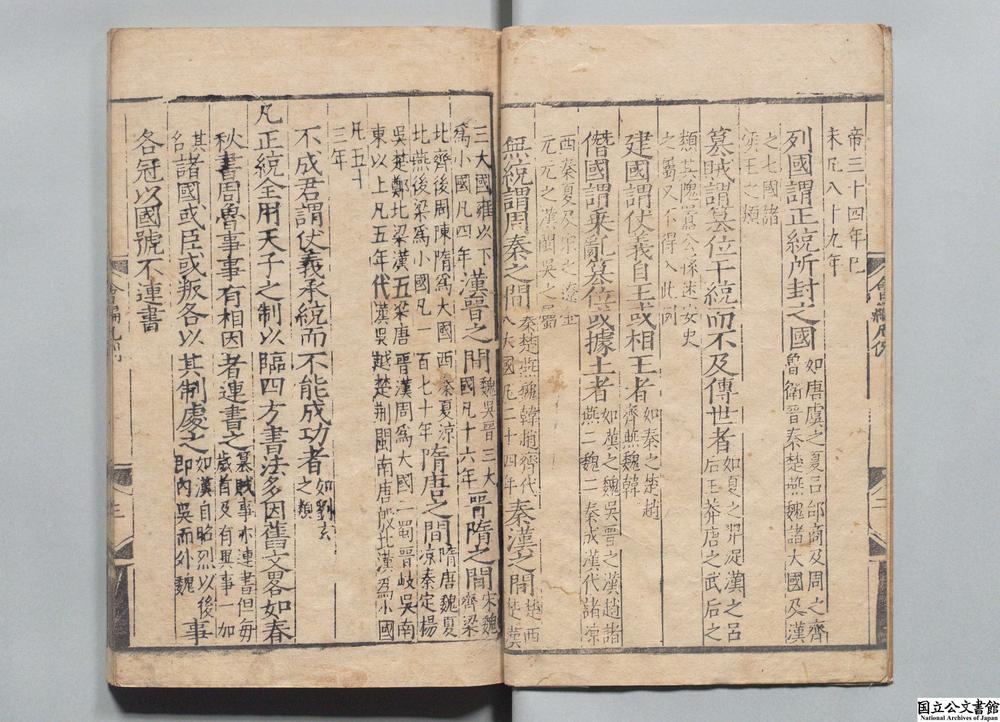 帝三十四年己
未凡八十九年
列國謂正統所封之國如唐虞之夏吕邰商及周之齊
魯衛晉秦楚燕魏諸大國及漢
之七國諸
矦王之類
簒賊謂簒位干統而不及傳世者如夏之羿浞漢之吕
后王莽唐之武后之
類其隗嚣公孫述安史
之蜀又不得入此例
建國謂仗義自王或相王者如秦之楚趙
齊燕魏韓
僭國謂乘亂簒位或據土者如漢之魏吳晉之漢趙諸
燕二二魏二秦成漢代諸凉
西秦夏及宋之遼並
元元之漢閩吳之蜀
無統謂周秦之間秦楚燕魏韓趙齊代
八大國凡二十四年秦漢之間楚西
楚漢
三大國雍以下
爲小國凡四年漢晉之間魏吳晉三大
國凡十六年晉隋之間宋魏
齊梁
北齊後周陳隋爲大國西秦夏涼
北燕後梁爲小國凡一百七十年隋唐之間隋唐魏夏
凉秦定楊
吳楚鄭北梁漢
東以上凡五年五代梁唐晉漢周爲大國一蜀晉岐吳南
漢吳越楚荆閩南唐殷北漢爲小國
凡五十
三年
不成君謂仗義承統而不能成功者如劉玄
之類
凡正統全用天子之制以臨四方書法多因舊文畧如春
秋書周魯事事有相因者連書之簒賊事亦連書但每
歲首及有異事一加
其
名諸國或臣或叛各以其制處之如漢自昭烈以後事
即內吳而外魏
各冠以國號不連書
會編凡例
二
會編凡例
三
国立公文書館
National Archives of Japan